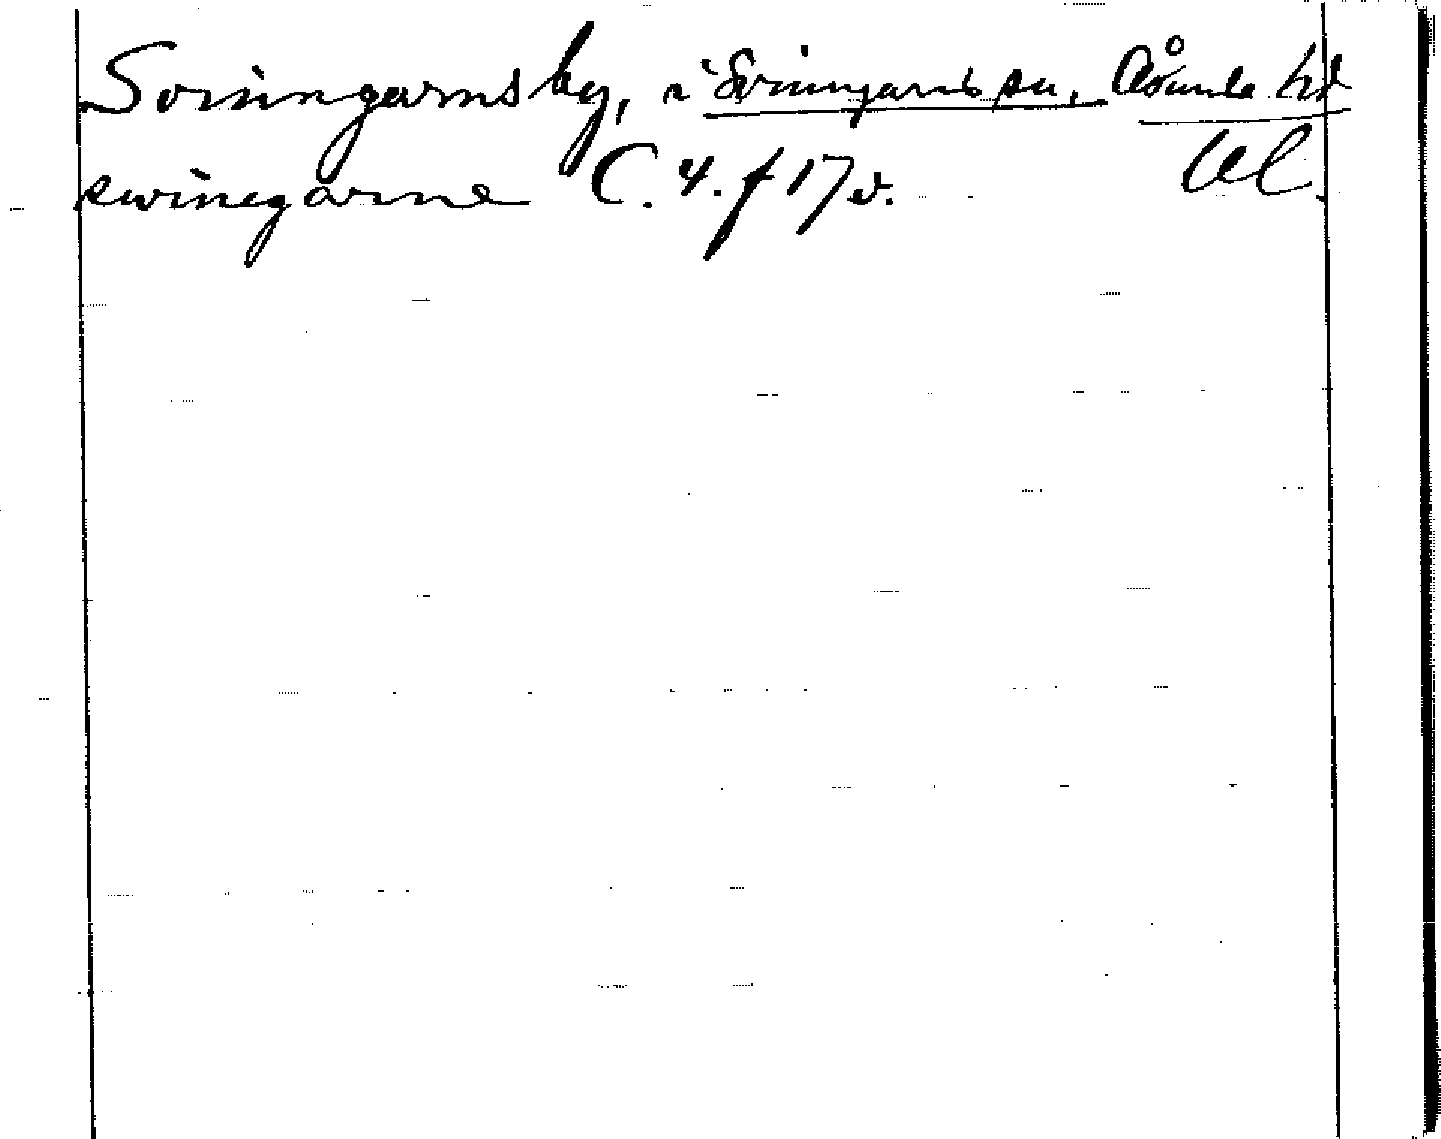 Svinngarns by, i Svinngarns sn, Åsunda hd
swinegarne C. 4. f 17 v. Ul.